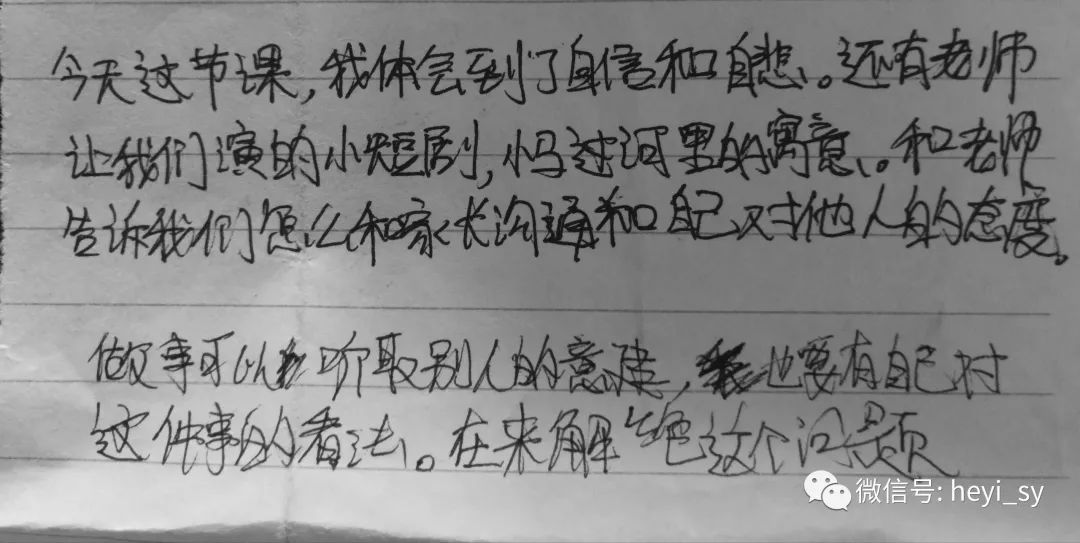 今天这节课,我体会到了自信和自悲。还有老师
让我们演的小短剧,小马过河里的寓意。和老师
告诉我们怎么和家长沟通和自己对他人的态度。
做事可以听取别人的意建,也要有自己对
这件事的看法。在来解绝这个问题
微信号: heyi_sy